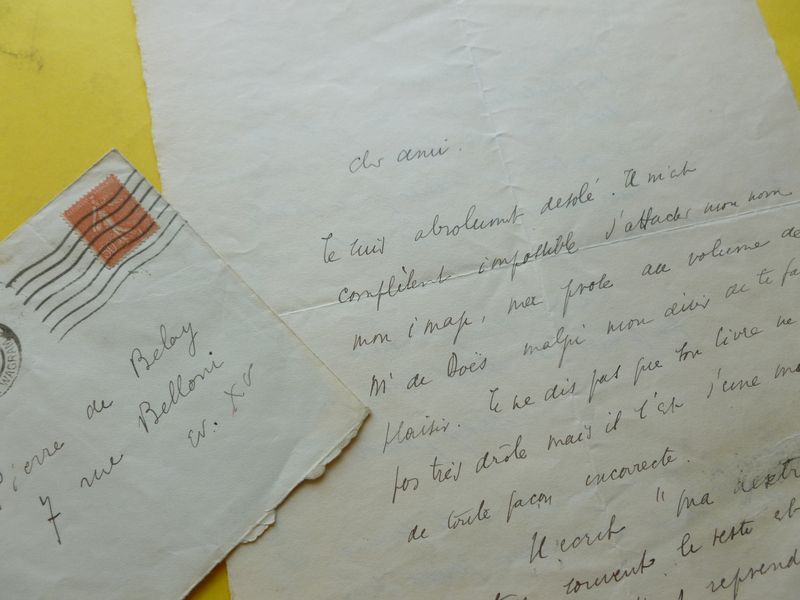 cher ami.
Je suis absolument désolé. Il m'est
complètent impossible d'attacher mon nom
mon image, ma prose au volume de
Mr de Doës malgré mon désir de te fa
plaisir. Je ne dis pas que ton livre ne
pas très drôle mais il l'est d'une ma
de toute façon incorrecte.
Il écrit "ma dextr
souvent. le reste est
reprend
Pierre de Belay
7 rue Belloni
Ev. XV
WAGRAM